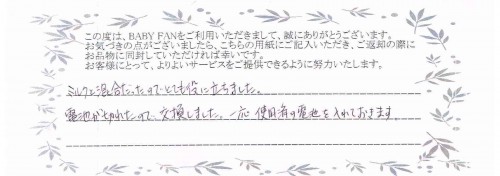 この度は、BABY FANをご利用いただきまして、誠にありがとうございます。
お気づきの点がございましたら、こちらの用紙にご記入いただき、ご返却の際に
お品物に同封していただければ幸いです。
お客様にとって、よりよいサービスをご提供できるように努力いたします。
ミルクと混合だったのでとても役に立ちました。
電池が切れたので、交換しました。一応 使用済の電池を入れておきます。